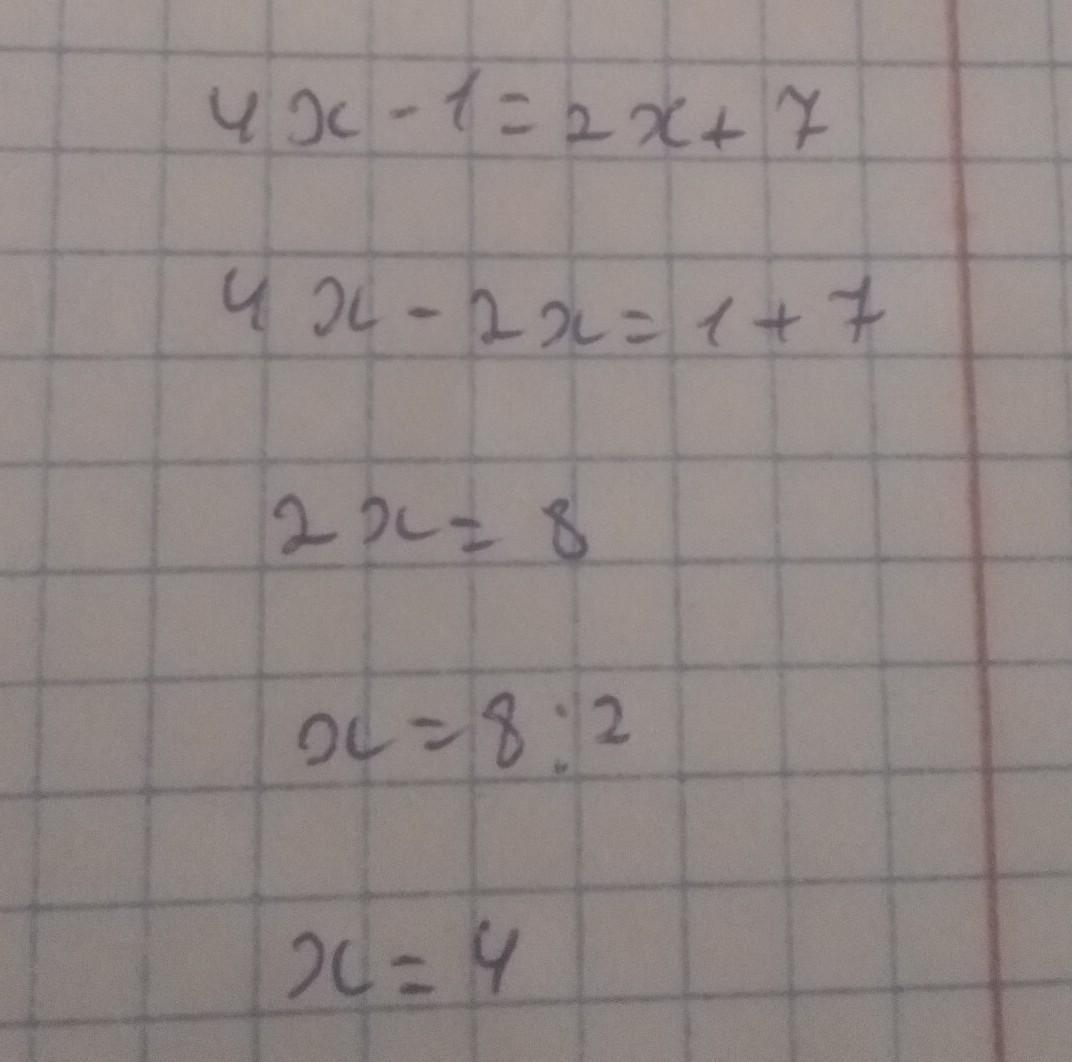 4x - 1 = 2x + 7
4x - 2x = 1 + 7
2x = 8
x = 8 : 2
x = 4